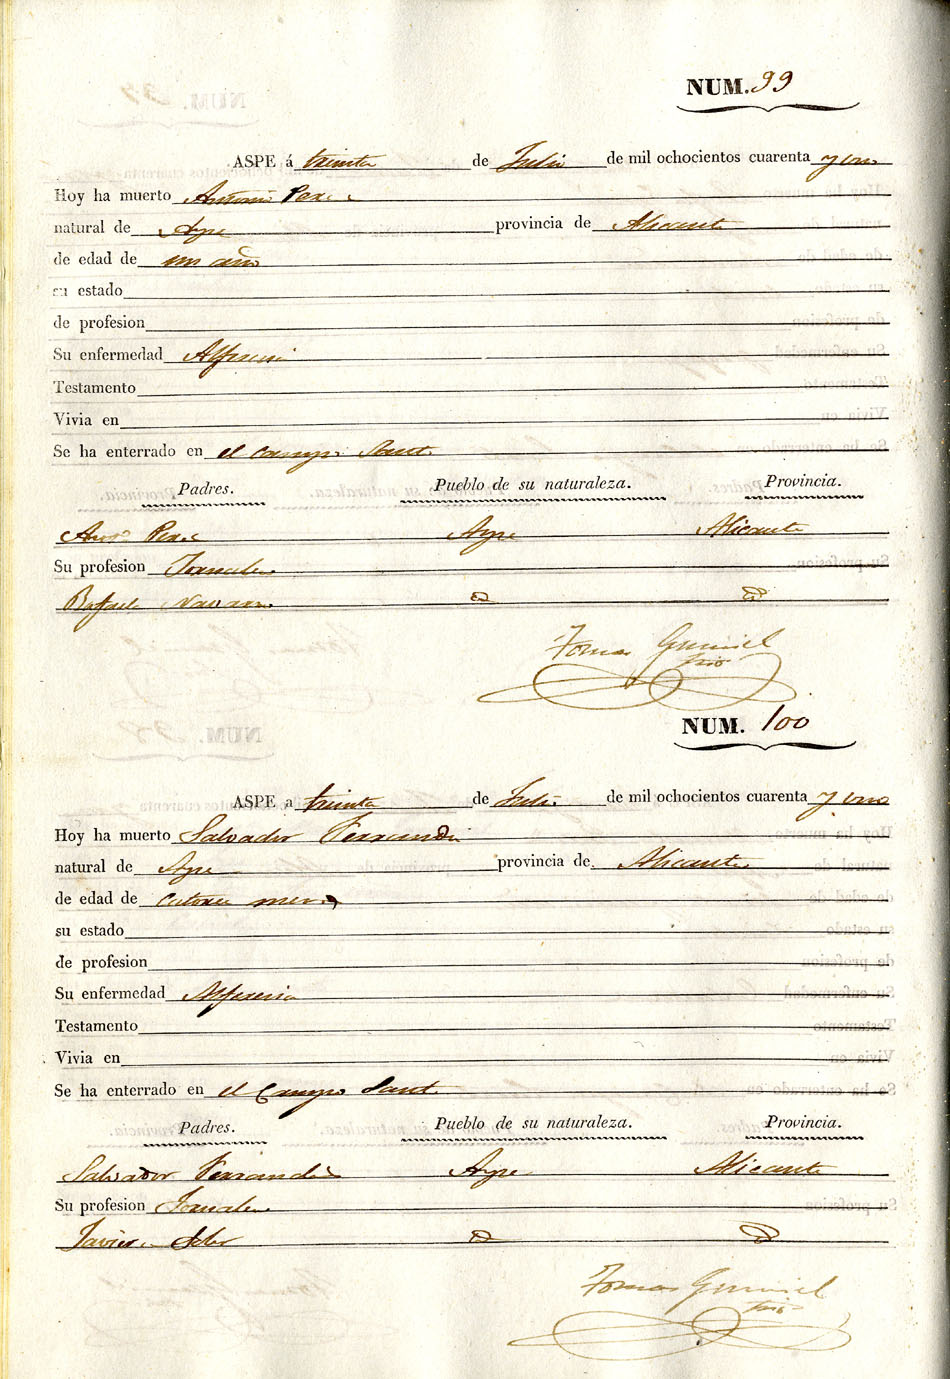 NUM. 99
ASPE á treinta de Julio de mil ochocientos cuarenta y uno
Hoy ha muerto Antonio Perez
natural de Aspe provincia de Alicante
de edad de un año
su estado
de profesion
Su enfermedad Alferecia
Testamento
Vivia en
Se ha enterrado en el Campo Santo
Padres. Pueblo de su naturaleza. Provincia.
Anto Perez Aspe Alicante
Su profesion Jornalero
Rafaela Navarro
Tomas
NUM. 100
ASPE a treinta de Julio de mil ochocientos cuarenta y uno
Hoy ha muerto Salvador Ferrandis
natural de Aspe provincia de Alicante
de edad de catorce meses
su estado
de profesion
Su enfermedad Alferecia
Testamento
Vivia en
Se ha enterrado en el Campo Santo
Padres. Pueblo de su naturaleza. Provincia.
Salvador Ferrandis Aspe Alicante
Su profesion Jornalero
Soler
Tomas